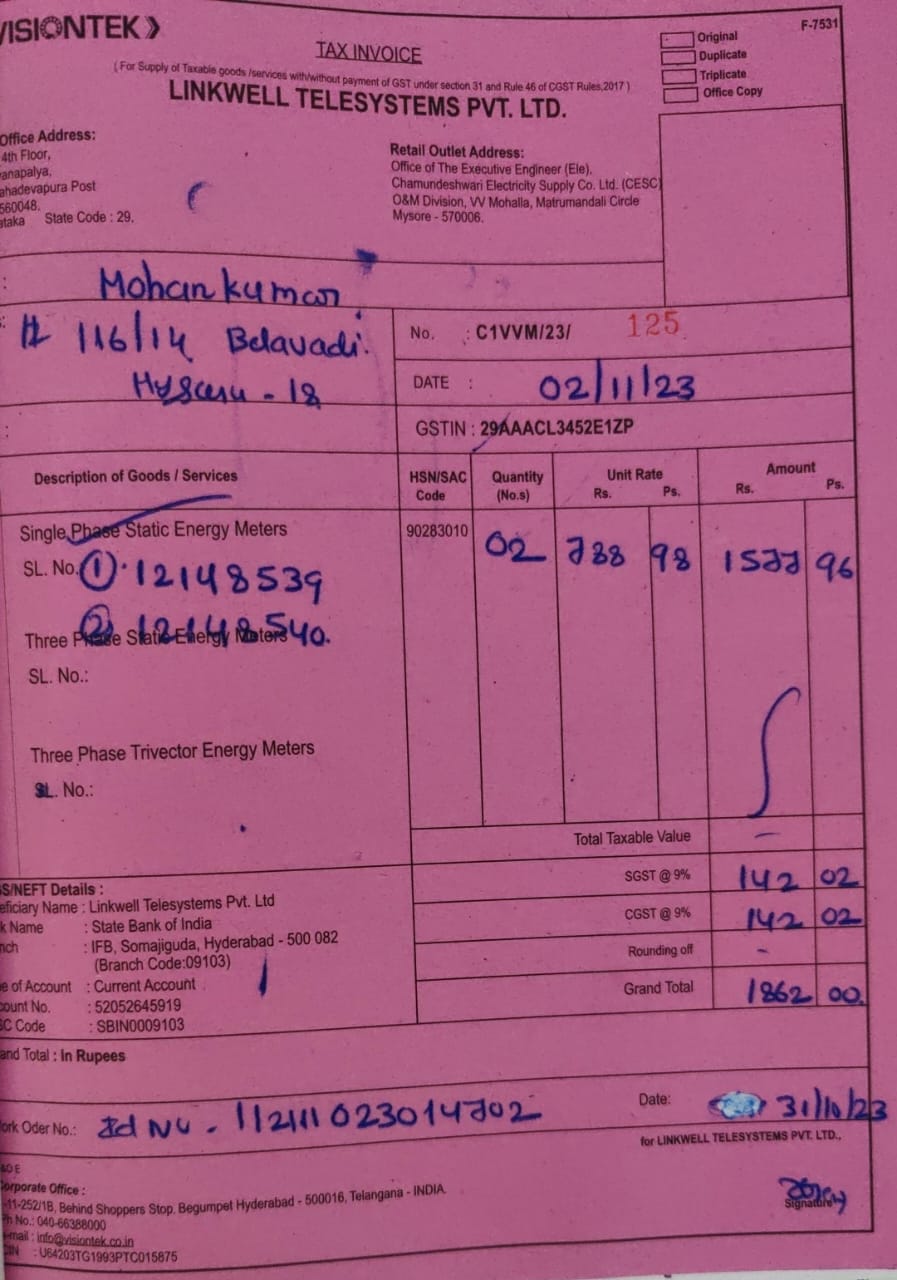 VISIONTEK
F-7531
TAX INVOICE
( For Supply of Taxable goods /services with/without payment of GST under section 31 and Rule 46 of CGST Rules,2017 )
LINKWELL TELESYSTEMS PVT. LTD.
Original
Duplicate
Triplicate
Office Copy
Office Address:
4th Floor,
anapalya,
ahadevapura Post
560048.
ataka State Code : 29.
Retail Outlet Address:
Office of The Executive Engineer (Ele),
Chamundeshwari Electricity Supply Co. Ltd. (CESC)
O&M Division, VV Mohalla, Matrumandali Circle
Mysore - 570006.
: Mohan kumar
116/14 Belavadi.
- 18
No. : C1VVM/23/ 125
DATE : 02/11/23
GSTIN : 29AAACL3452E1ZP
Description of Goods / Services HSN/SAC Code Quantity (No.s) Unit Rate Rs. Ps. Amount Rs. Ps.
Single Phase Static Energy Meters 90283010 02 788 98 1577 96
SL. No. ① 12148539
② 12148540.
Three Phase Static Energy Meters
SL. No.:
Three Phase Trivector Energy Meters
SL. No.:
Total Taxable Value -
SGST @ 9% 142 02
CGST @ 9% 142 02
Rounding off -
Grand Total 1862 00.
GS/NEFT Details :
eficiary Name : Linkwell Telesystems Pvt. Ltd
k Name : State Bank of India
nch : IFB, Somajiguda, Hyderabad - 500 082
(Branch Code:09103)
e of Account : Current Account
count No. : 52052645919
SC Code : SBIN0009103
and Total : In Rupees
ork Oder No.: Id No - 112111023014702
Date: 31/10/23
for LINKWELL TELESYSTEMS PVT. LTD.,
&O E
orporate Office :
-11-252/1B, Behind Shoppers Stop, Begumpet Hyderabad - 500016, Telangana - INDIA.
h No.: 040-66388000
-mail : info@visiontek.co.in
CIN : U64203TG1993PTC015875
Signature